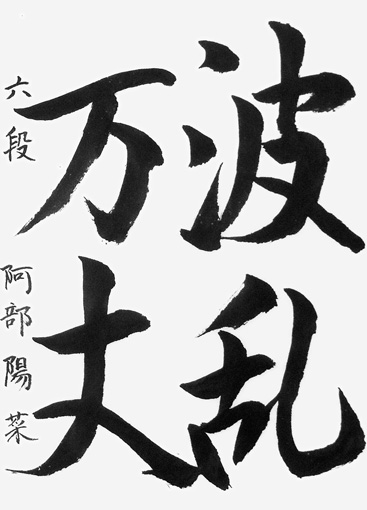 波乱
万丈
六段 阿部陽菜